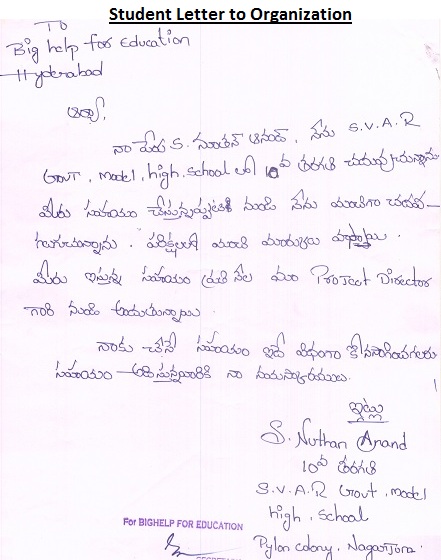 Student Letter to Organization
To
Big help for Education
Hyderabad
ఆర్యా,
నా పేరు S. నూతన్ ఆనంద్, నేను S.V.A.R
Govt. Model, high, school లో 10వ తరగతి చదువుచున్నాను
మీరు సహాయం నుండి నేను మంచిగా
మంచి మార్కులు
మీరు ఇస్తున్న సహాయం ప్రతి నెల మా Project Director
గారి నుండి అందుతున్నాయి
నాకు చేసే సహాయం ఇదే విధంగా
సహాయం నా నమస్కారములు.
ఇట్లు
S. Nuthan Anand
10వ తరగతి
S.V.A.R Govt, model
high, school
Pylon colony, Nagarjuna
For BIGHELP FOR EDUCATION